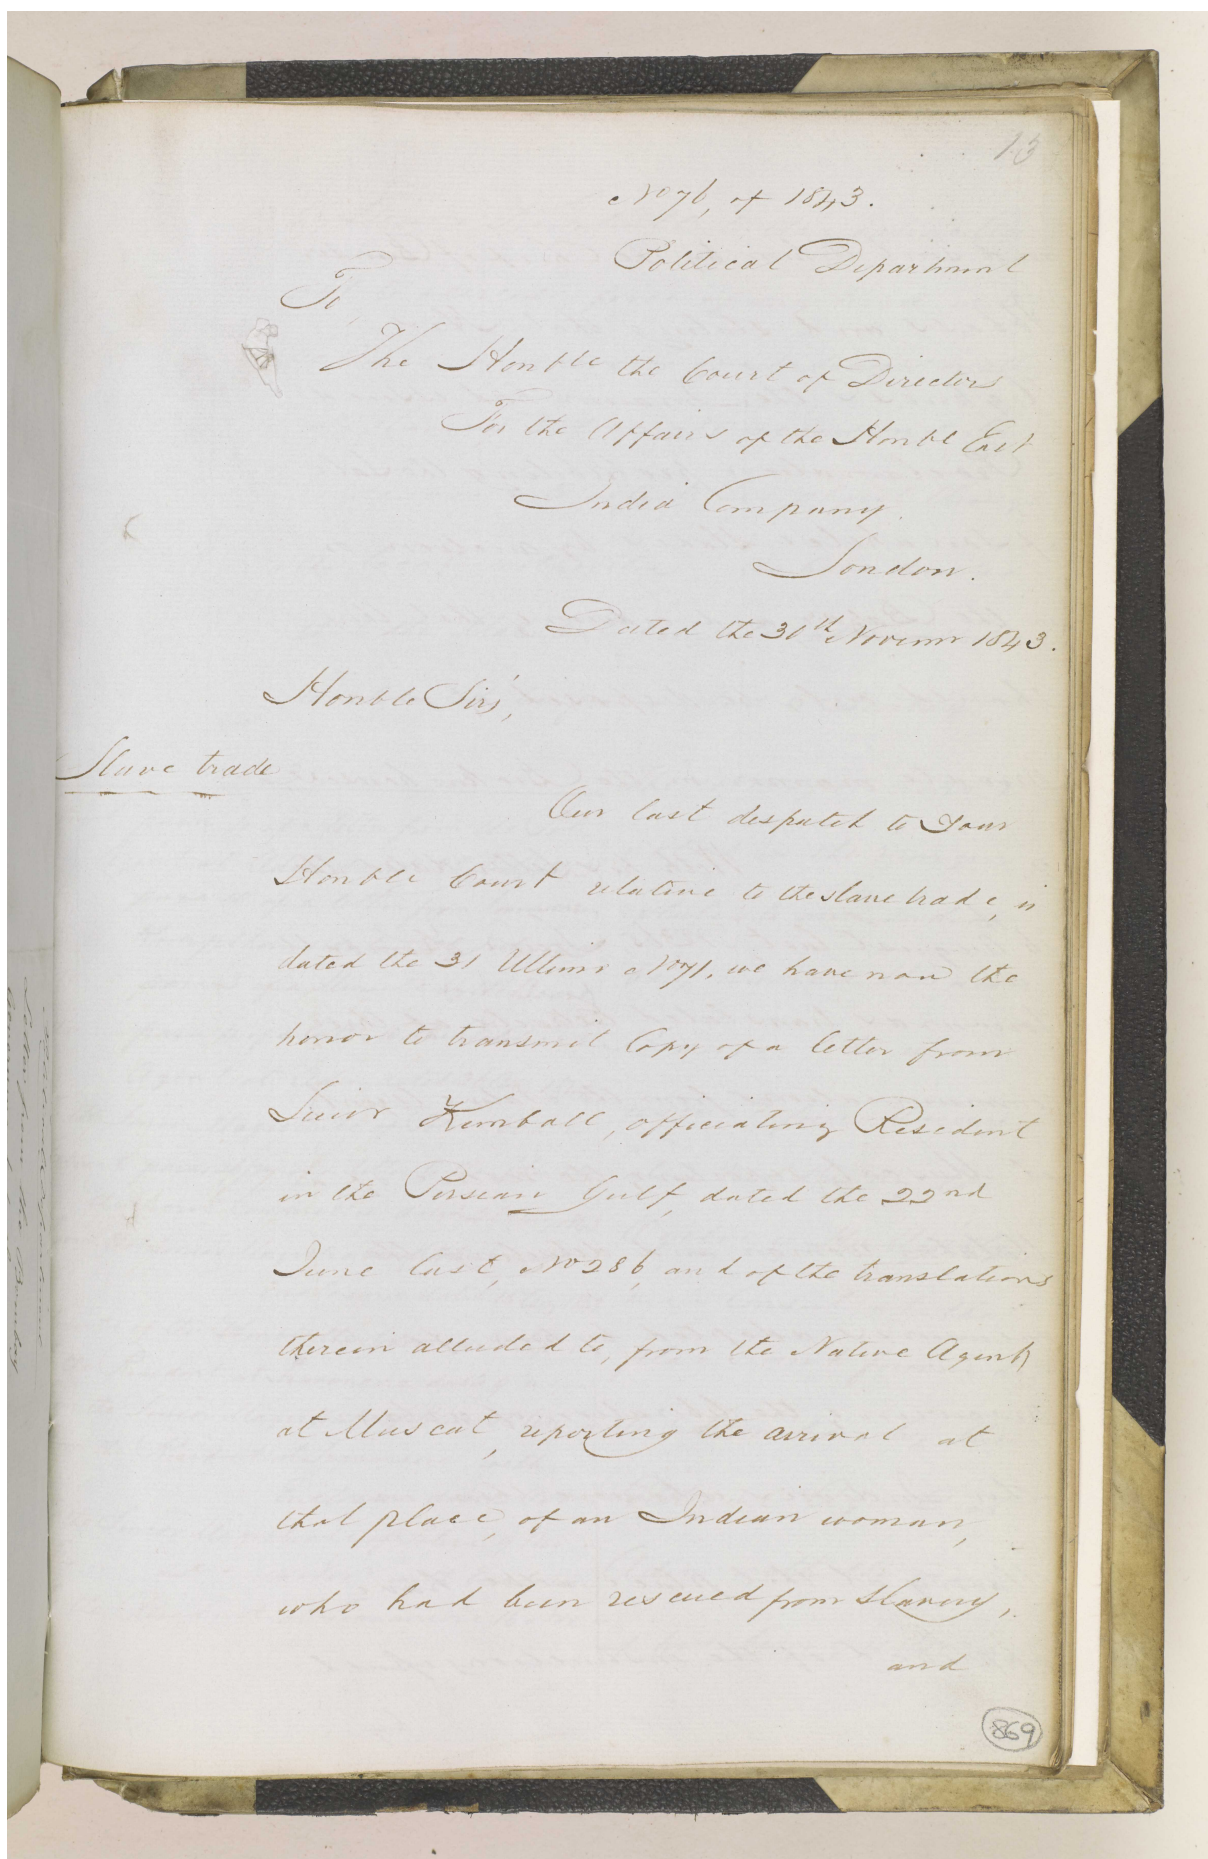 13
No 76, of 1843.
Political Department
To,
The Honble the Court of Directors
For the Affairs of the Honble East
India Company.
London.
Dated the 30th Novemr 1843.
Honble Sirs,
Slave trade
Our last despatch to Your
Honble Court relative to the slave trade, is
dated the 31 Ultimo No 71, we have now the
honor to transmit Copy of a letter from
Lieut Kemball, officiating Resident
in the Persian Gulf, dated the 22nd
June last, No 286, and of the translations
therein alluded to, from the Native Agent,
at Muscat, reporting the arrival at
that place, of an Indian woman,
who had been rescued from slavery,
and
869
Letter from the Bombay